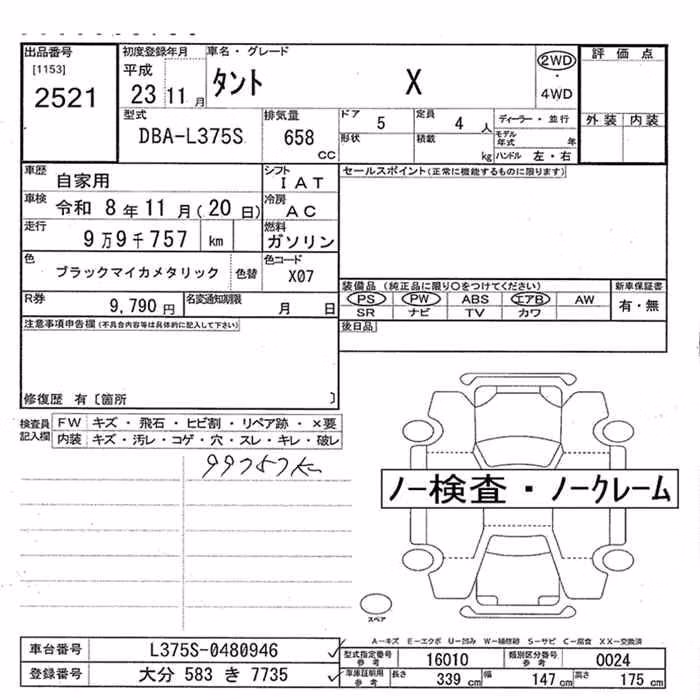 出品番号 初度登録年月 車名・グレード 評価点
[1153] 平成 2WD
2521 23 11月 タント X ・ 4WD
型式 排気量 ドア 5 定員 4 人 ディーラー・並行 外装 内装
DBA-L375S 658 CC 形状 積載 kg モデル年式 年
ハンドル 左・右
車歴 自家用 シフト IAT セールスポイント(正常に機能するものに限ります)
車検 令和 8年11月(20日) 冷房 AC
走行 9万9千757 km 燃料 ガソリン
色 ブラックマイカメタリック 色替 色コード X07
装備品(純正品に限り○をつけてください) 新車保証書
R券 9,790円 名変通知期限 月 日 PS PW ABS エアB AW 有・無
SR ナビ TV カワ
注意事項申告欄(不具合内容等は具体的に記入して下さい) 後日品
修復歴 有〔箇所 〕
検査員記入欄 FW キズ・飛石・ヒビ割・リペア跡・×要
内装 キズ・汚レ・コゲ・穴・スレ・キレ・破レ
99757km
ノー検査・ノークレーム
スペア
A―キズ E―エクボ U―凹み W―補修跡 S―サビ C―腐食 XX―交換済
車台番号 L375S-0480946 型式指定番号参考 16010 類別区分番号参考 0024
登録番号 大分 583 き 7735 車庫証明用参考 長さ 339 cm 幅 147 cm 高さ 175 cm